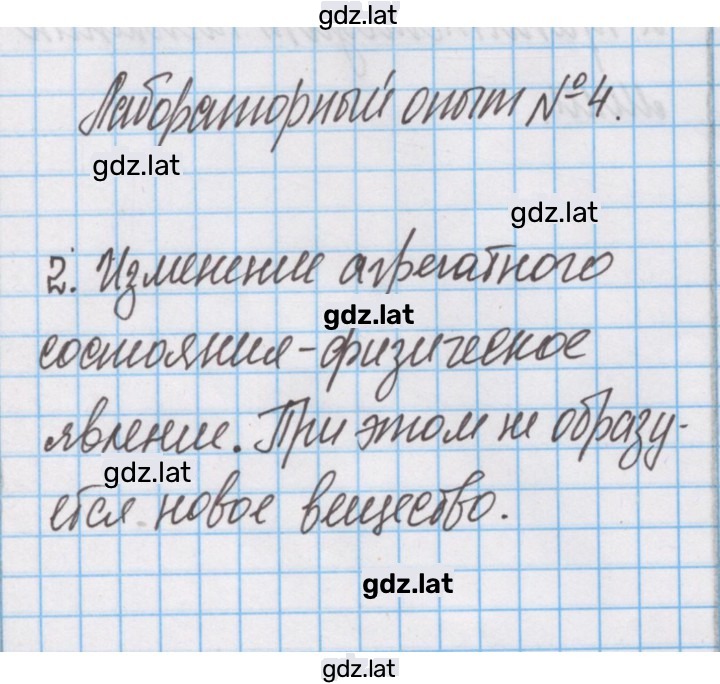 gdz.lat
Лабораторный опыт №4.
gdz.lat
gdz.lat
2. Изменение агрегатного
gdz.lat
состояния-физическое
явление. При этом не образу-
gdz.lat
ется новое вещество.
gdz.lat
gdz.lat